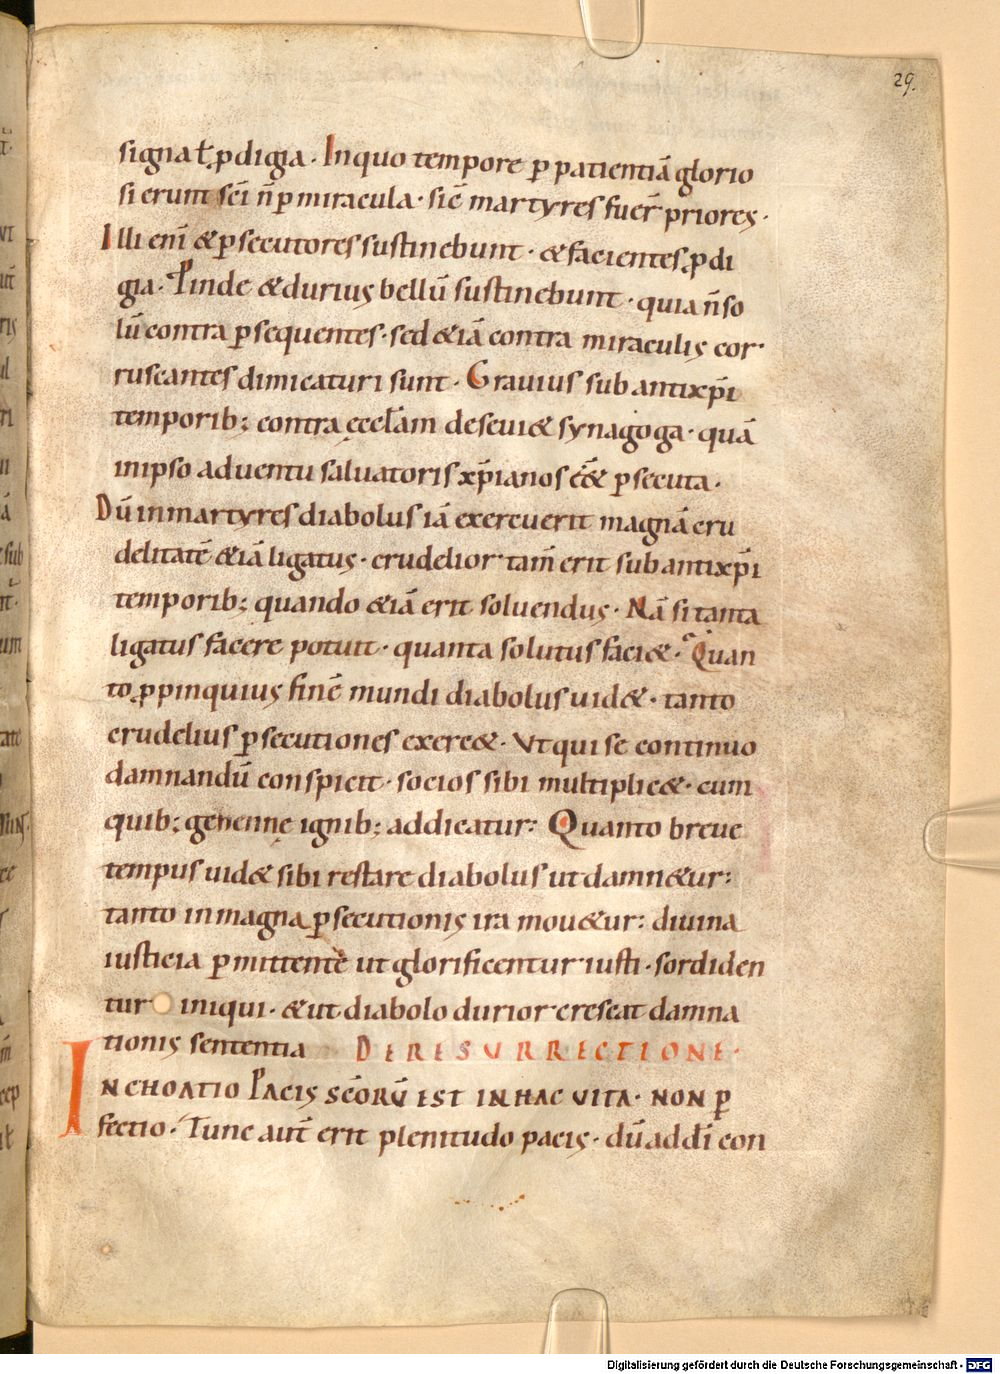 29.
signa ł ꝓdigia · In quo tempore ꝑ patientiā glorio
si erunt sc̄i n̄ ꝑ miracula · sic̄ martyres fuer̄ priores ·
Illi eni᷃ & ꝑsecutores sustinebunt · & facientes ꝓdi
gia · Proinde & durius bellū sustinebunt · quia n̄ so
lū contra ꝑsequentes · sed & iā contra miraculis cor
ruscantes dimicaturi sunt · Grauius sub antixp̄i
temporib; contra ęccl̄am deseui& synagoga · quā
in ipso aduentu saluatoris xp̄ianos ē & ꝑsecuta ·
Dū in martyres diabolus iā exercuerit magnā cru
delitatē & iā ligatus · crudelior tam̄ erit sub antixp̄i
temporib; quando & iā erit soluendus · Nā si tanta
ligatus facere potuit · quanta solutus faci& · Quan
to ꝓpinquius finē mundi diabolus uid& · tanto
crudelius ꝑsecutiones exerc& · Ut qui se continuo
damnandū conspicit · socios sibi multiplic& · cum
quib; gehennę ignib; addicatur : Quanto breue
tempus uid& sibi restare diabolus ut damn&ur :
tanto in magna ꝑsecutionis ira mou&ur : diuina
iusticia ꝑmittentē ut glorificentur iusti · sordiden
tur iniqui · & ut diabolo durior crescat damna
tionis sententia DE RESURRECTIONE ·
INCHOATIO PACIS SC̄ORŪ EST IN HAC VITA · NON ꝑ
fectio · Tunc aut̄ erit plenitudo pacis · dū ad d̄i con
Digitalisierung gefördert durch die Deutsche Forschungsgemeinschaft - DFG